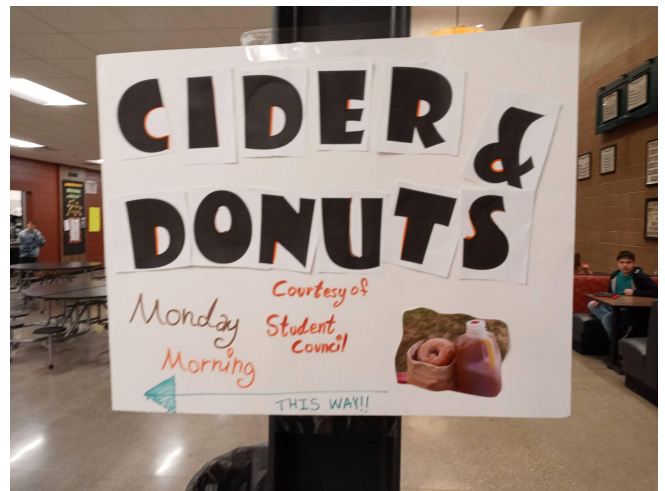 CIDER &
DONUTS
Monday
Morning
Courtesy of
Student
Council
THIS WAY!!